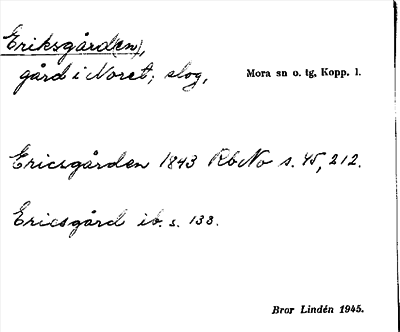 Eriksgård(en),
gård i Noret; slog,
Mora sn o. tg, Kopp. l.
Ericsgården 1843 RbNo s. 45, 212.
Ericsgård ib. s. 133.
Bror Lindén 1945.